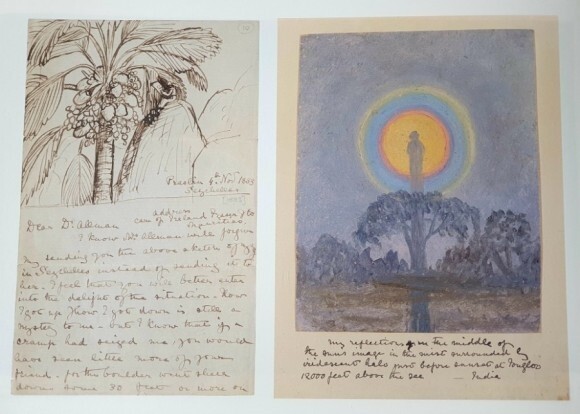 Praslin 9th Nov 1883
Seychelles
address
care of Ireland Fraser & Co
Mauritius
Dear Dr. Allman
I know Mrs. Allman will forgive
my sending you the above sketch of my
in Seychelles instead of sending it to
her. I feel that you will better enter
into the delight of the situation - how
I got up & how I got down is still a
mystery to me - but I know that if a
cramp had seized me, you would
have seen little more of your
friend - for the boulder went sheer
down some 80 feet or more on
my reflections from the middle of
the suns image in the mist surrounded by
iridescent halo just before sunset at Tongloo
12000 feet above the sea — India